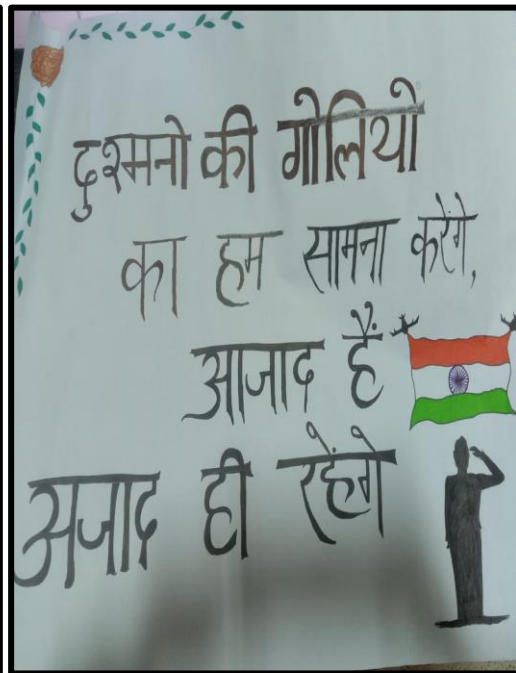 दुश्मनो की गोलियो
का हम सामना करेंगे,
आजाद हैं
अजाद ही रहेंगे